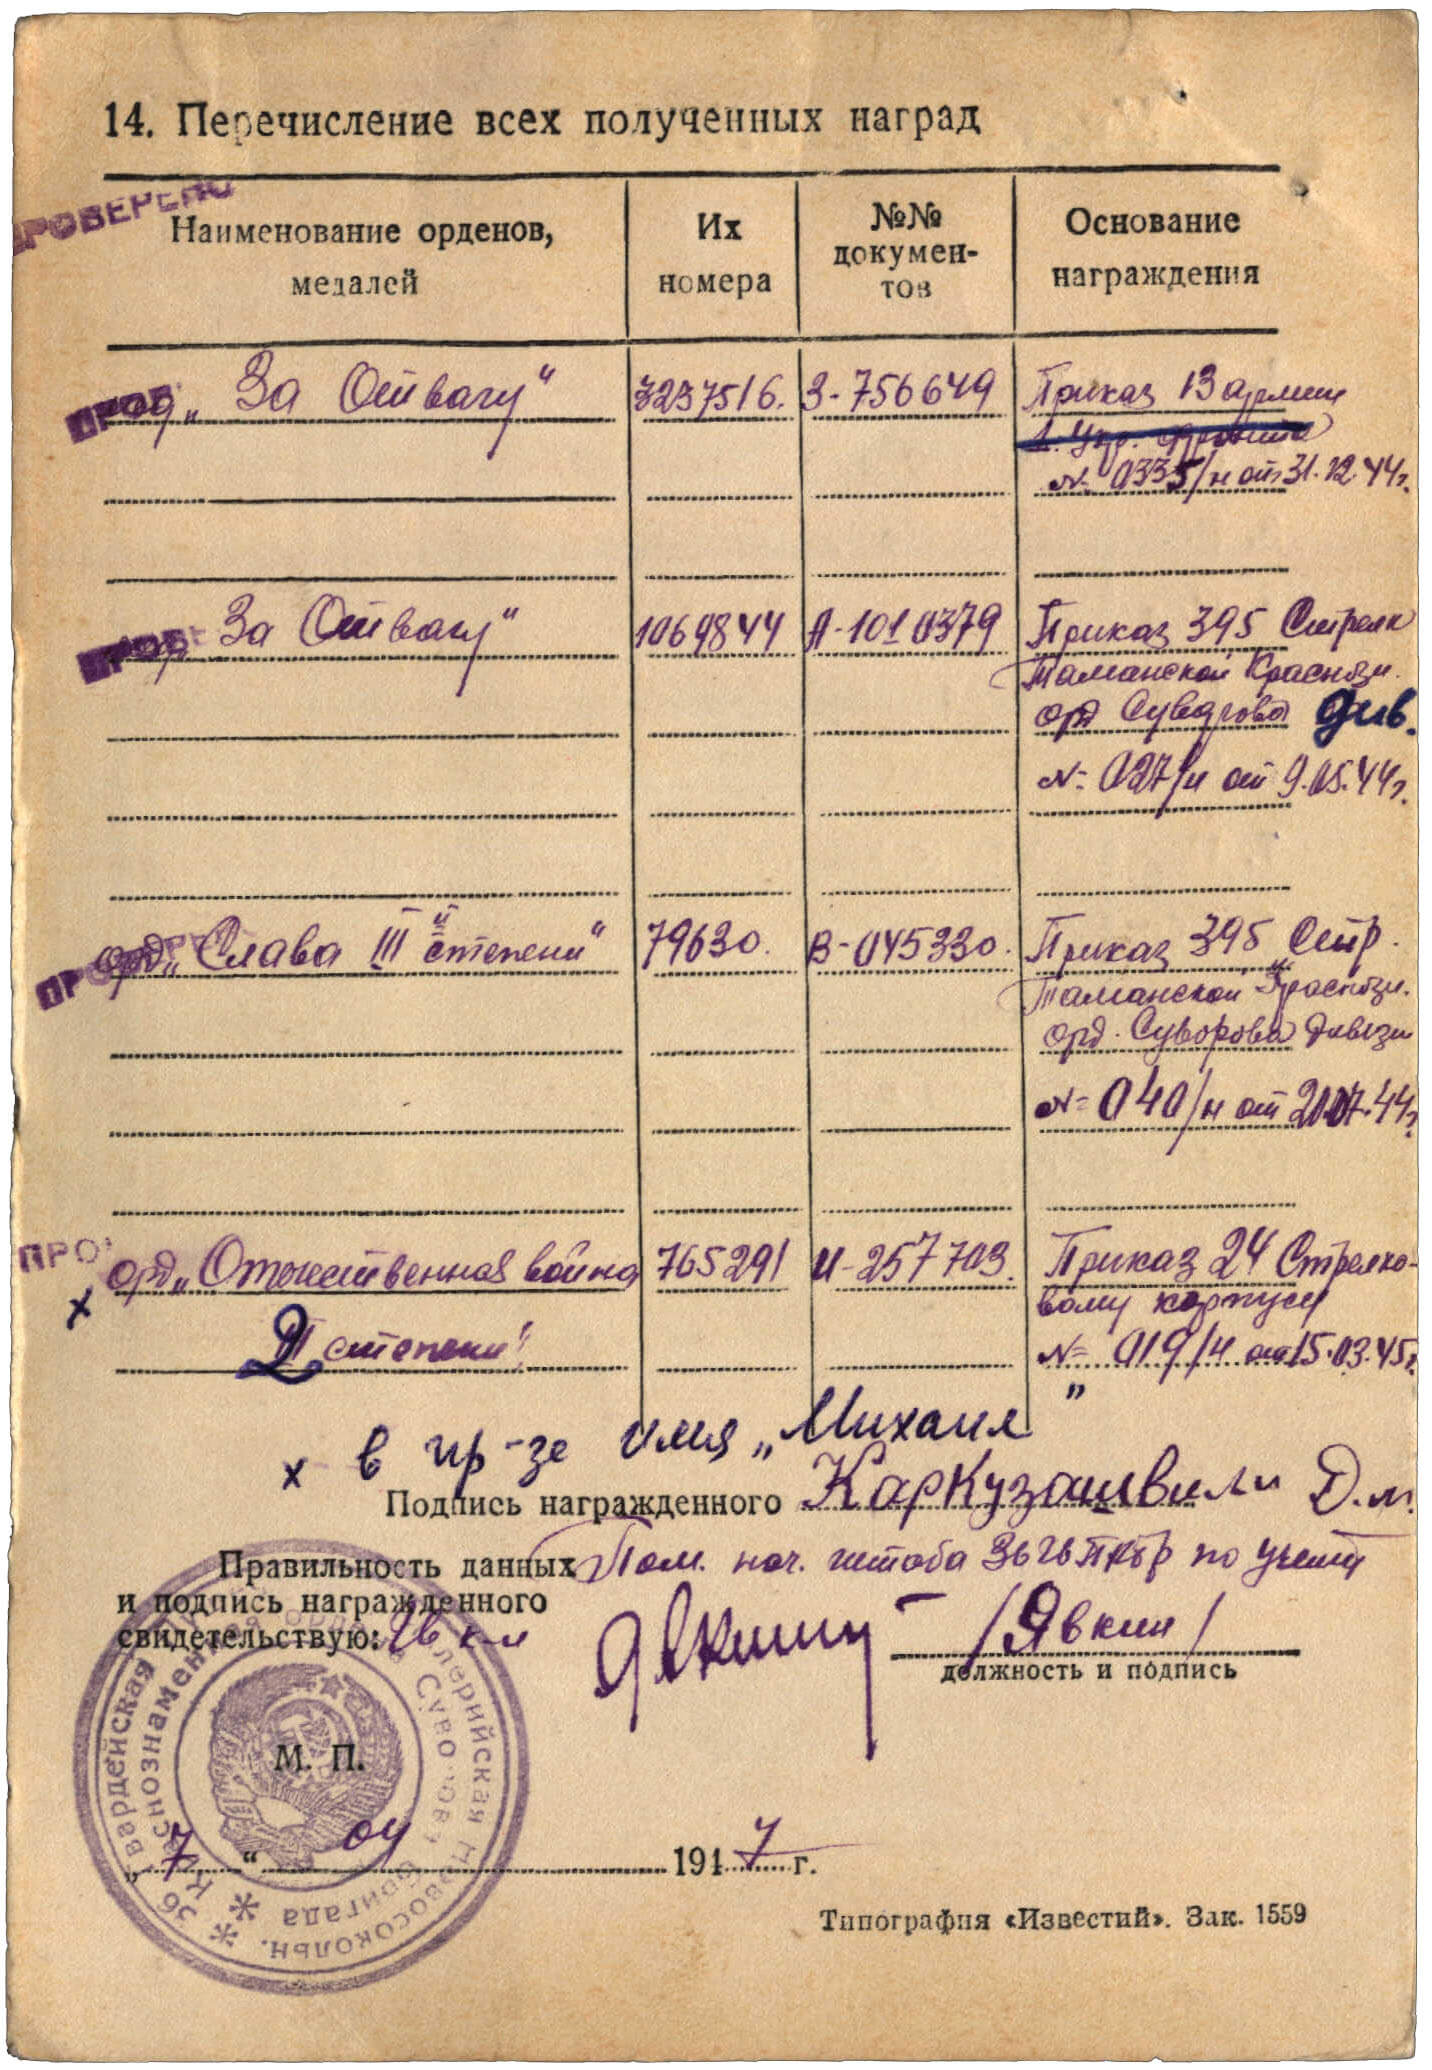 14. Перечисление всех полученных наград
ПРОВЕРЕНО
Наименование орденов, медалей
Их номера
№№ докумен-тов
Основание награждения
„За Отвагу“ 3237516. З-756649 Приказ 13 армии
1. Укр. фронта
№ 0335/н от 31.12.44г.
За Отвагу“ 1069844 А-1010379 Приказ 395 Стрелк
Таманской Краснозн.
орд Суворова див.
№ 027/н от 9.05.44г.
орд „Слава III й степени“ 79630. В-045330. Приказ 395 Стр.
Таманской Краснозн.
орд. Суворова дивизи
№ 040/н от 20.07.44г.
ПРО
х орд „Отечественная война 765291 И-257703. Приказ 24 Стрелко-
вому корпусу
2 степени“ № 019/н от 15.03.45г.
х в пр-зе имя „Михаил“
Подпись награжденного Каркузашвили Д.М.
Правильность данных Пом. нач. штаба по учету
и подпись награжденного
свидетельствую: Явкин /Явкин/
должность и подпись
М. П.
36 Гвардейская Артиллерийская Новосокольн.
Краснознаменная Суворова бригада
„7“ 04 1947 г.
Типография «Известий». Зак. 1559